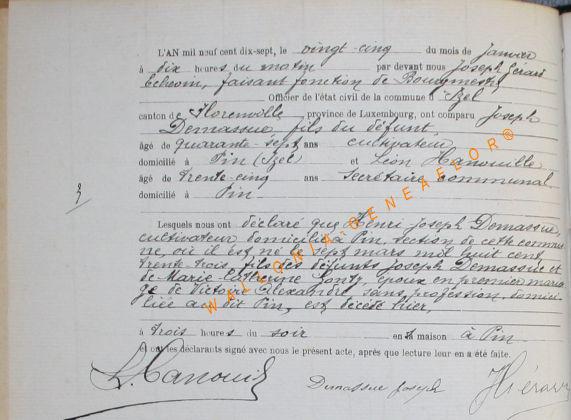 L'AN mil neuf cent dix-sept, le vingt-cinq du mois de janvier
à dix heures du matin par devant nous Joseph Gérard
Echevin, faisant fonction de Bourgmestre
Officier de l'état civil de la commune d'Izel
canton de Florenville, province de Luxembourg, ont comparu Joseph
Demassue, fils du défunt,
âgé de quarante-sept ans cultivateur
domicilié à Pin (Izel) et Léon Hanouille
âgé de trente-cinq ans secrétaire communal
domicilié à Pin
3
Lesquels nous ont déclaré que Henri Joseph Demassue,
cultivateur domicilié à Pin, section de cette commu-
ne, où il est né le sept mars mil huit cent
trente-trois, fils des défunts Joseph Demassue et
de Marie Catherine Gontz, époux en premier maria-
ge de Victoire Alexandre, sans profession, domici-
liée au dit Pin, est décédé hier,
à trois heures du soir en sa maison à Pin
et ont les déclarants signé avec nous le présent acte, après que lecture leur en a été faite.
L. Hanouille Demassue Joseph J Gérard
WALLONIA-GENEAELOR®